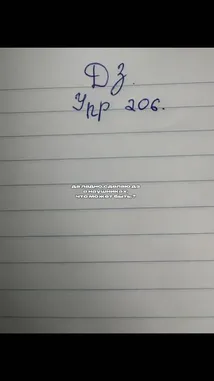 ДЗ.
Упр 206.
да ладно сделаю дз
в наушниках,
что может быть?